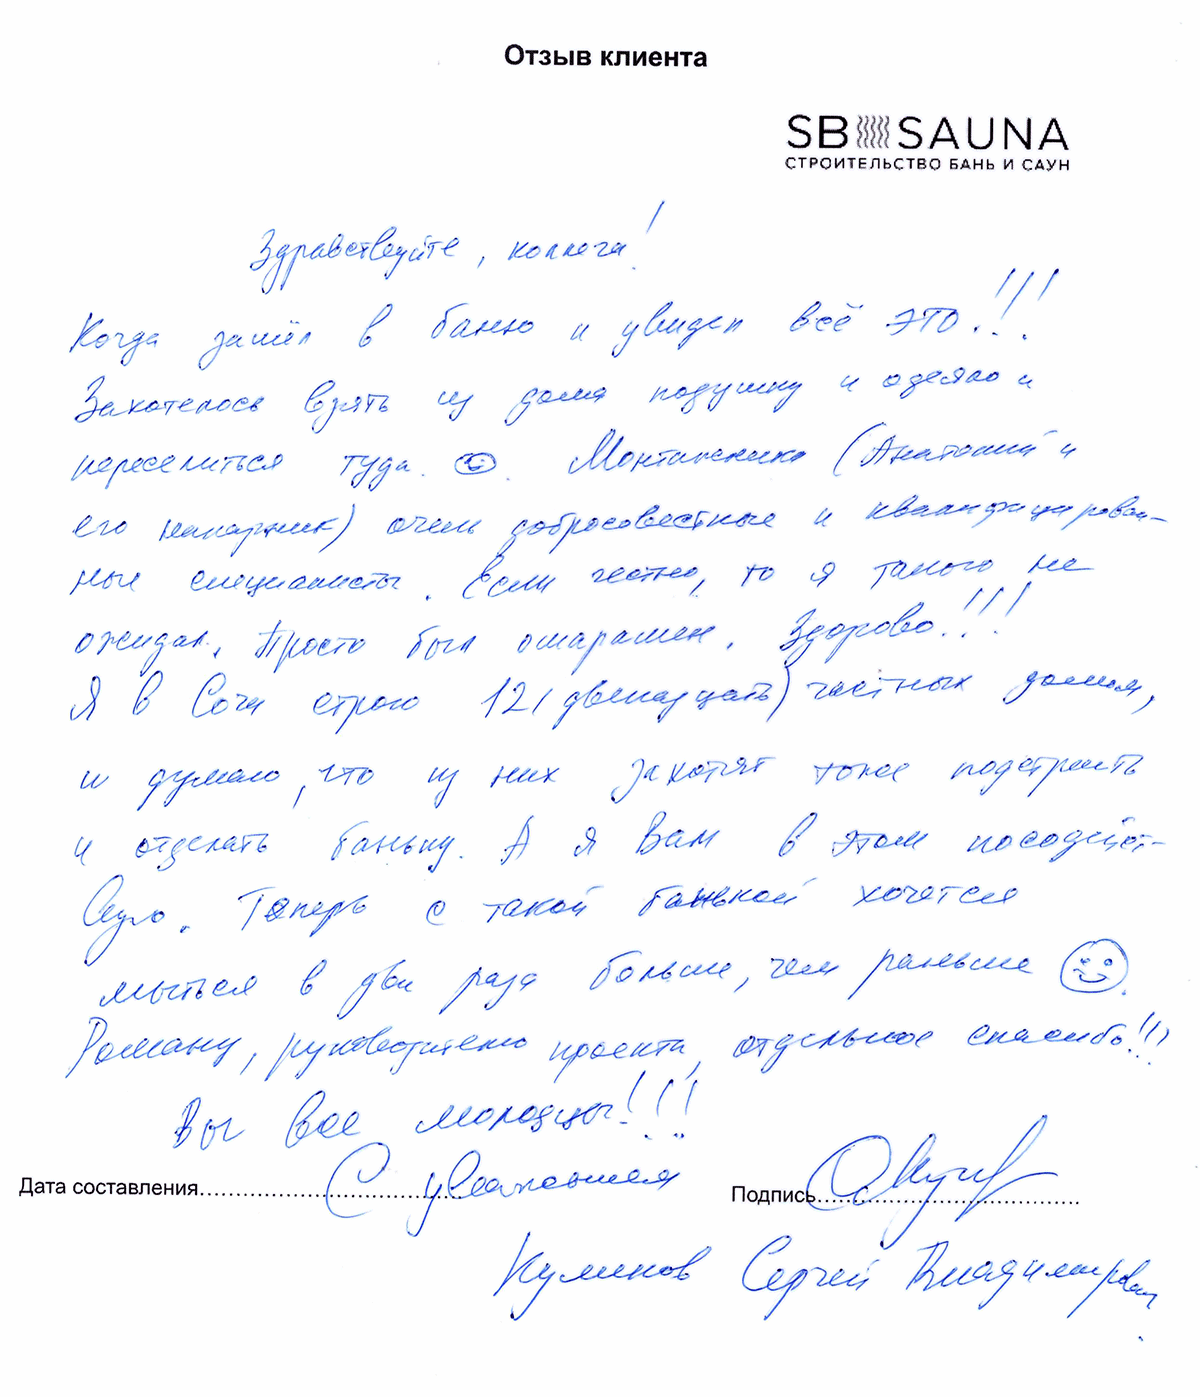 Отзыв клиента
SB SAUNA
СТРОИТЕЛЬСТВО БАНЬ И САУН
Здравствуйте, коллеги!
Когда зашёл в баню и увидел всё ЭТО!!!
Захотелось взять из дома подушку и одеяло и
переселиться туда. Монтажники (Анатолий и
его напарник) очень добросовестные и квалифицирован-
ные специалисты. Если честно, то я такого не
ожидал. Просто был ошарашен. Здорово!!!
Я в Сочи строю 12 (двенадцать) частных домов,
и думаю, что из них захотят тоже подстроить
и отделать баньку. А я Вам в этом посодейст-
вую. Теперь с такой банькой хочется
мыться в два раза больше, чем раньше
Роману, руководителю проекта, отдельное спасибо!!!
Вы все молодцы!!!
Дата составления С уважением Подпись
Сергей Владимирович